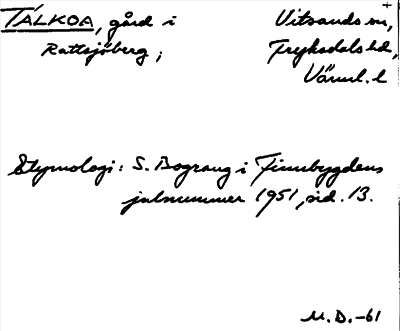 TÁLKOA, gård i Vitsands sn,
Rattsjöberg; Fryksdals hd,
Värml. l
Etymologi: S. Bograng i Finnbygdens
julnummer 1951, sid. 13.
M. D. -61